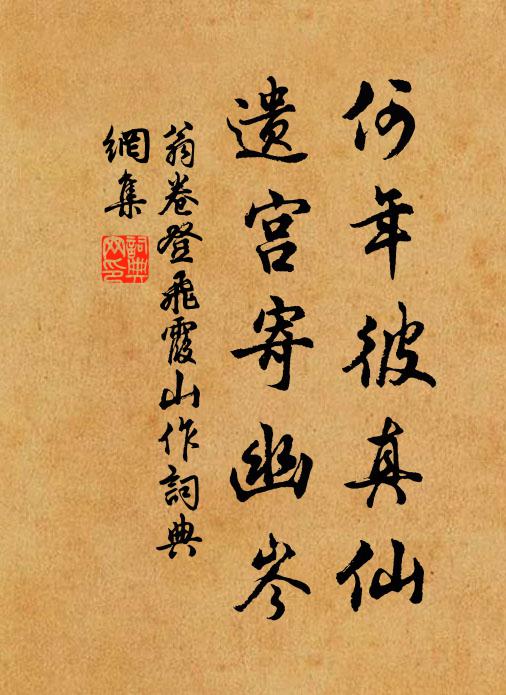 何年彼真仙
遗宫寄幽岑
翁卷登飛霞山作詞典
網集
詞典
网印